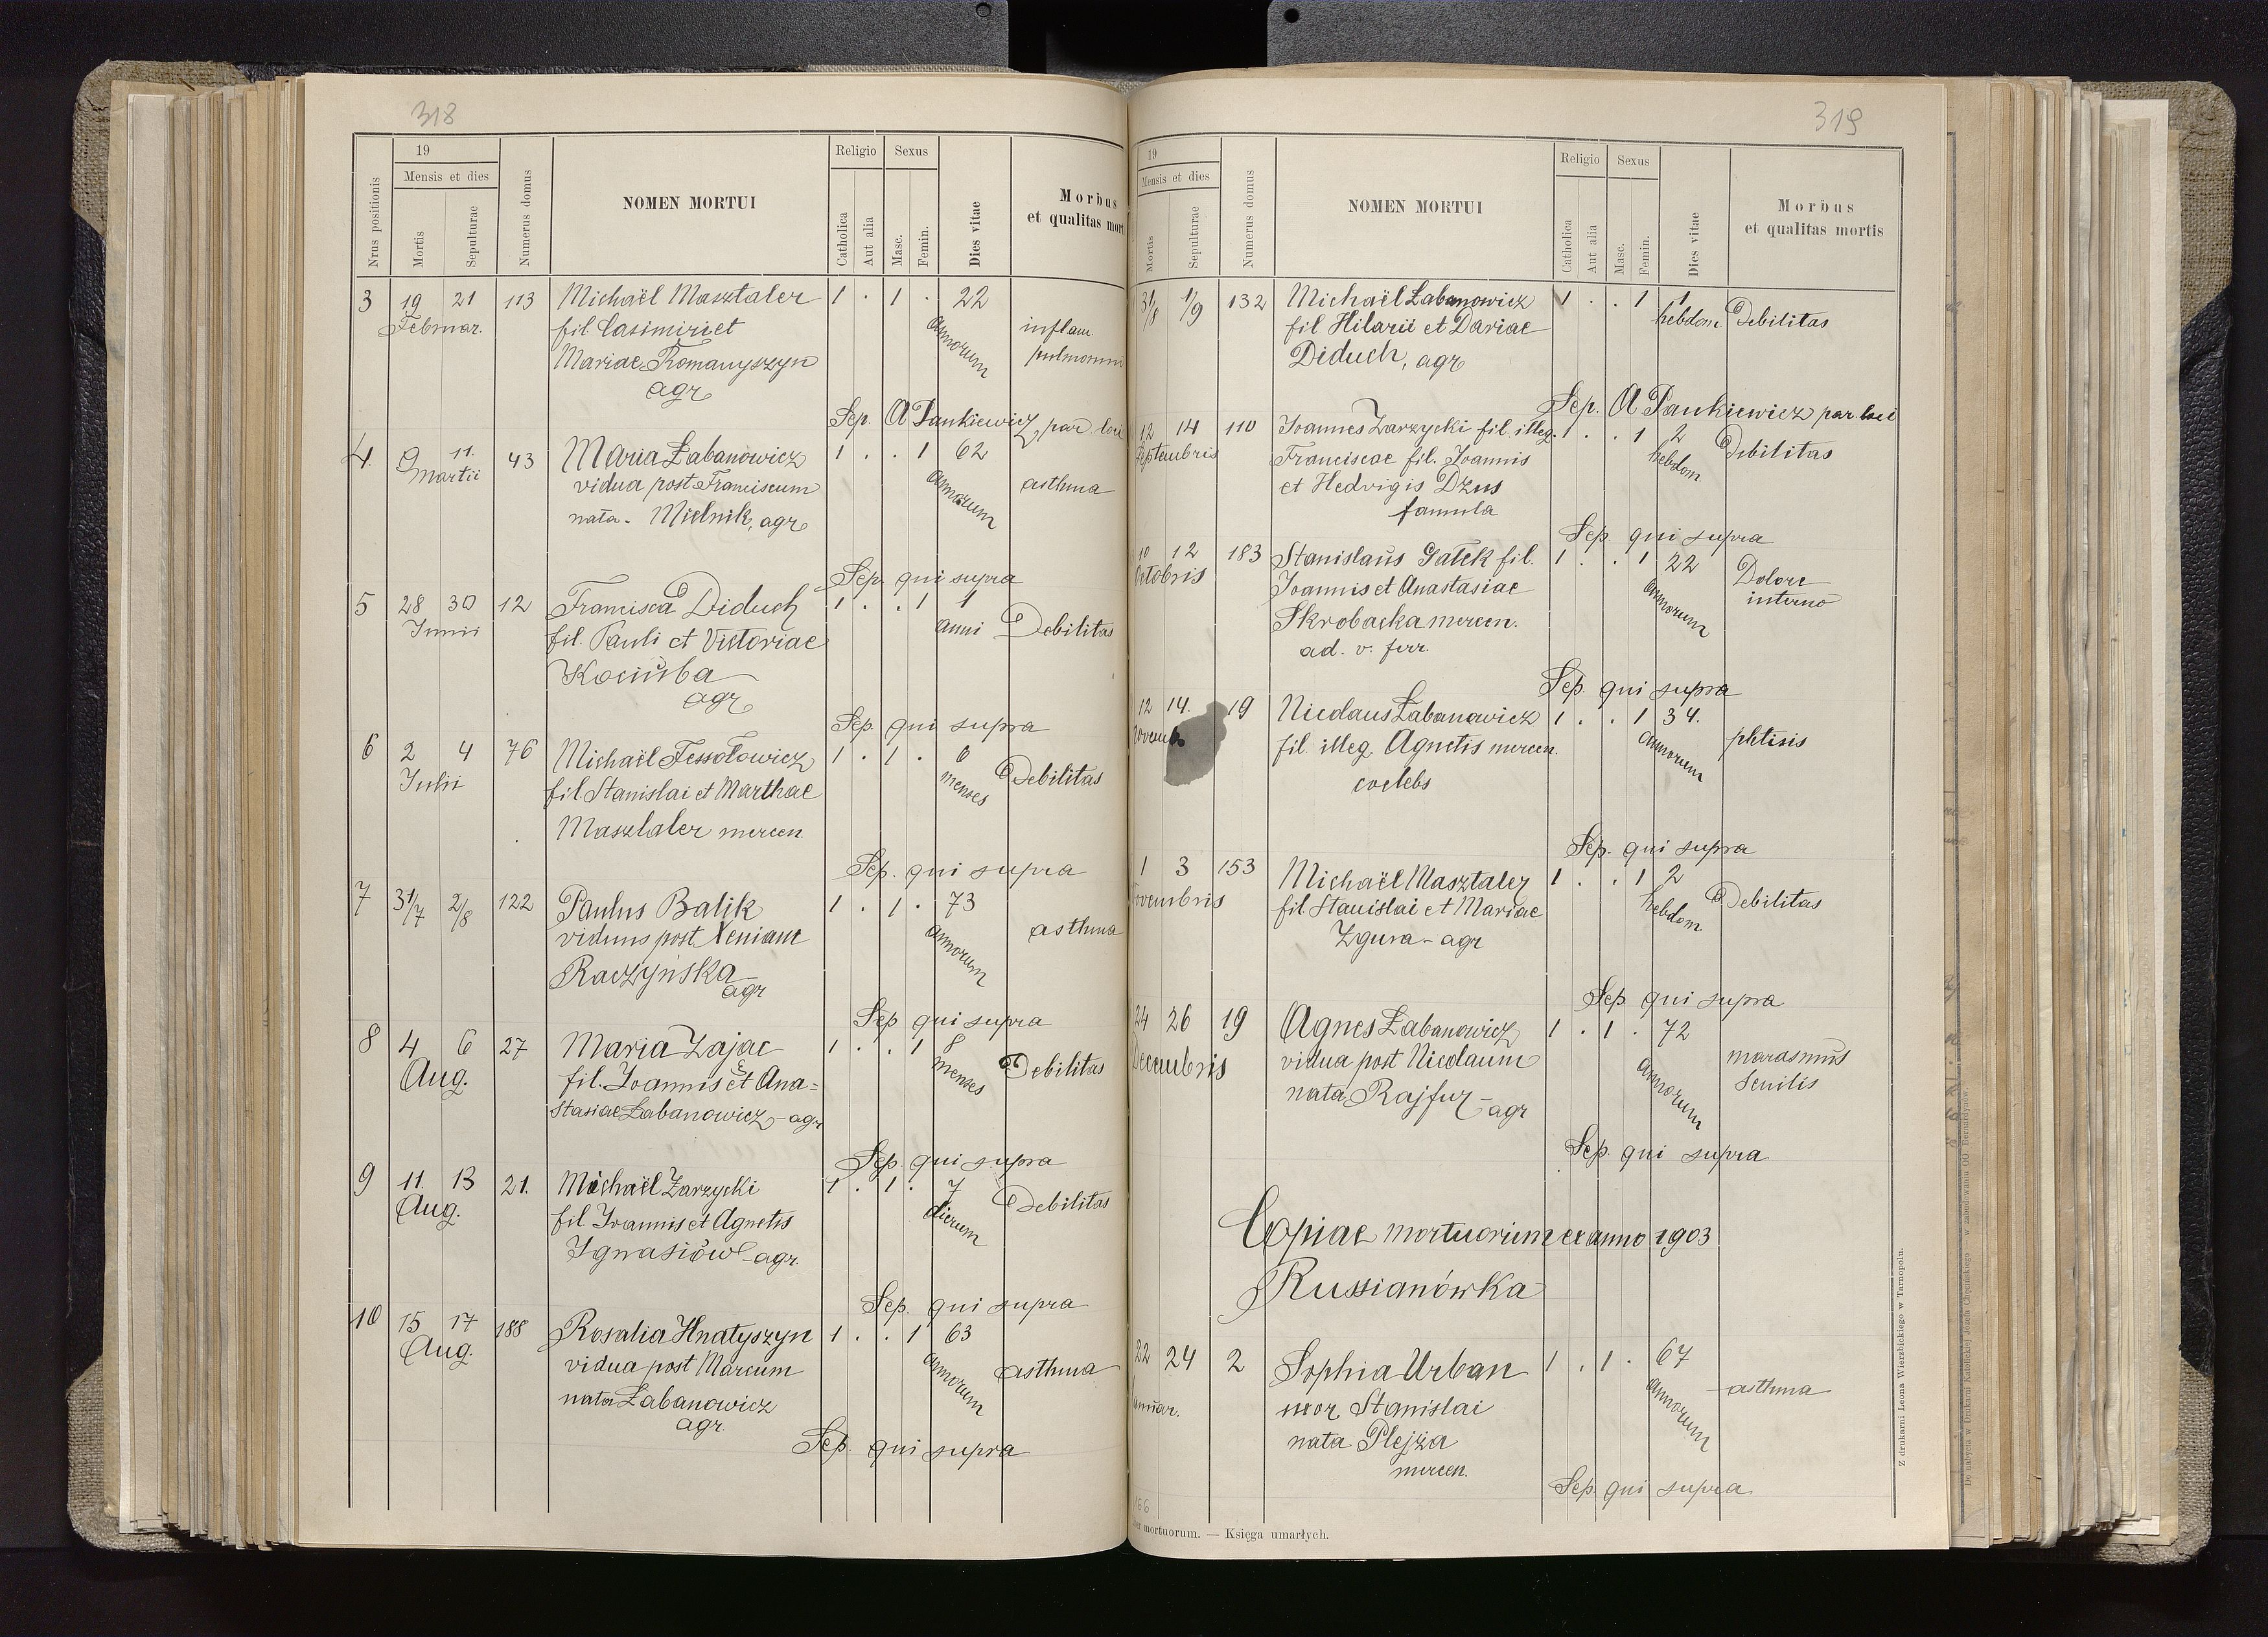 318
19
Mensis et dies
Religio
Sexus
Nrus positionis
Mortis
Sepulturae
Numerus domus
NOMEN MORTUI
Catholica
Aut alia
Masc.
Femin.
Dies vitae
Morbus
et qualitas mort
3 19 21 113 Michaël Masztaler 1 . 1 . 22
Februar. fil Casimiri et annorum inflam.
Mariae Romanyszyn pulmonum
agr
Sep. A Pankiewicz, par loci
4. 9 11. 43 Maria Łabanowicz 1 . . 1 62
Martii vidua post Franciscum annorum asthma
nata - Mielnik, agr
Sep. qui supra
5 28 30 12 Francisca Diduch 1 . . 1 1
Junii fil. Pauli et Victoriae anni Debilitas
Kociuba
agr
Sep. qui supra
6 2 4 76 Michaël Fessołowicz 1 . 1 . 6
Julii fil. Stanislai et Marthae menses Debilitas
Masztaler mercen.
Sep. qui supra
7 31/7 2/8 122 Paulus Balik 1 . 1 . 73
viduus post Xeniam annorum asthma
Raczyńska
agr
Sep qui supra
8 4 6 27 Maria Zając 1 . . 1 8
Aug. fil. Joannis et Ana= menses Debilitas
stasiae Łabanowicz - agr
Sep. qui supra
9 11. 13 21. Michaël Zarzycki 1 . 1 . 7
Aug. fil Joannis et Agnetis dierum Debilitas
Ignasiów - agr.
Sep. qui supra
10 15 17 188 Rosalia Hnatyszyn 1 . . 1 63
Aug. vidua post Marcum annorum asthma
nata Łabanowicz
agr.
Sep. qui supra
319
19
Mensis et dies
Religio
Sexus
Mortis
Sepulturae
Numerus domus
NOMEN MORTUI
Catholica
Aut alia
Masc.
Femin.
Dies vitae
Morbus
et qualitas mortis
31/8 1/9 132 Michaël Łabanowicz 1 . . 1 1
fil Hilarii et Dariae hebdom. Debilitas
Diduch, agr
Sep. A Pankiewicz par. loci
12 14 110 Joannes Zarzycki fil. illeg. 1 . . 1 2
Septembris Franciscae fil. Joannis hebdom Debilitas
et Hedvigis Dzus
famula
Sep. qui supra
10 12 183 Stanislaus Gałek fil. 1 . . 1 22
Octobris Joannis et Anastasiae annorum Dolore
Skrobacka mercen. interno
ad. v. ferr.
Sep. qui supra
12 14. 19 Nicolaus Łabanowicz 1 . . 1 34.
fil. illeg. Agnetis mercen. annorum phtisis
coelebs
Sep. qui supra
1 3 153 Michaël Masztaler 1 . . 1 2
ovembris fil. Stanislai et Mariae hebdom Debilitas
Zgura - agr
Sep qui supra
24 26 19 Agnes Łabanowicz 1 . 1 . 72
Decembris vidua post Nicolaum annorum marasmus
nata Rajfur - agr senilis
Sep. qui supra
Copiae mortuorum ex anno 1903
Russianówka
22 24 2 Sophia Urban 1 . 1 . 67
anuar. uxor Stanislai annorum asthma
nata Plejza
mercen.
Sep. qui supra
166
er mortuorum. — Księga umarłych.
Z drukarni Leona Wierzbickiego w Tarnopolu.